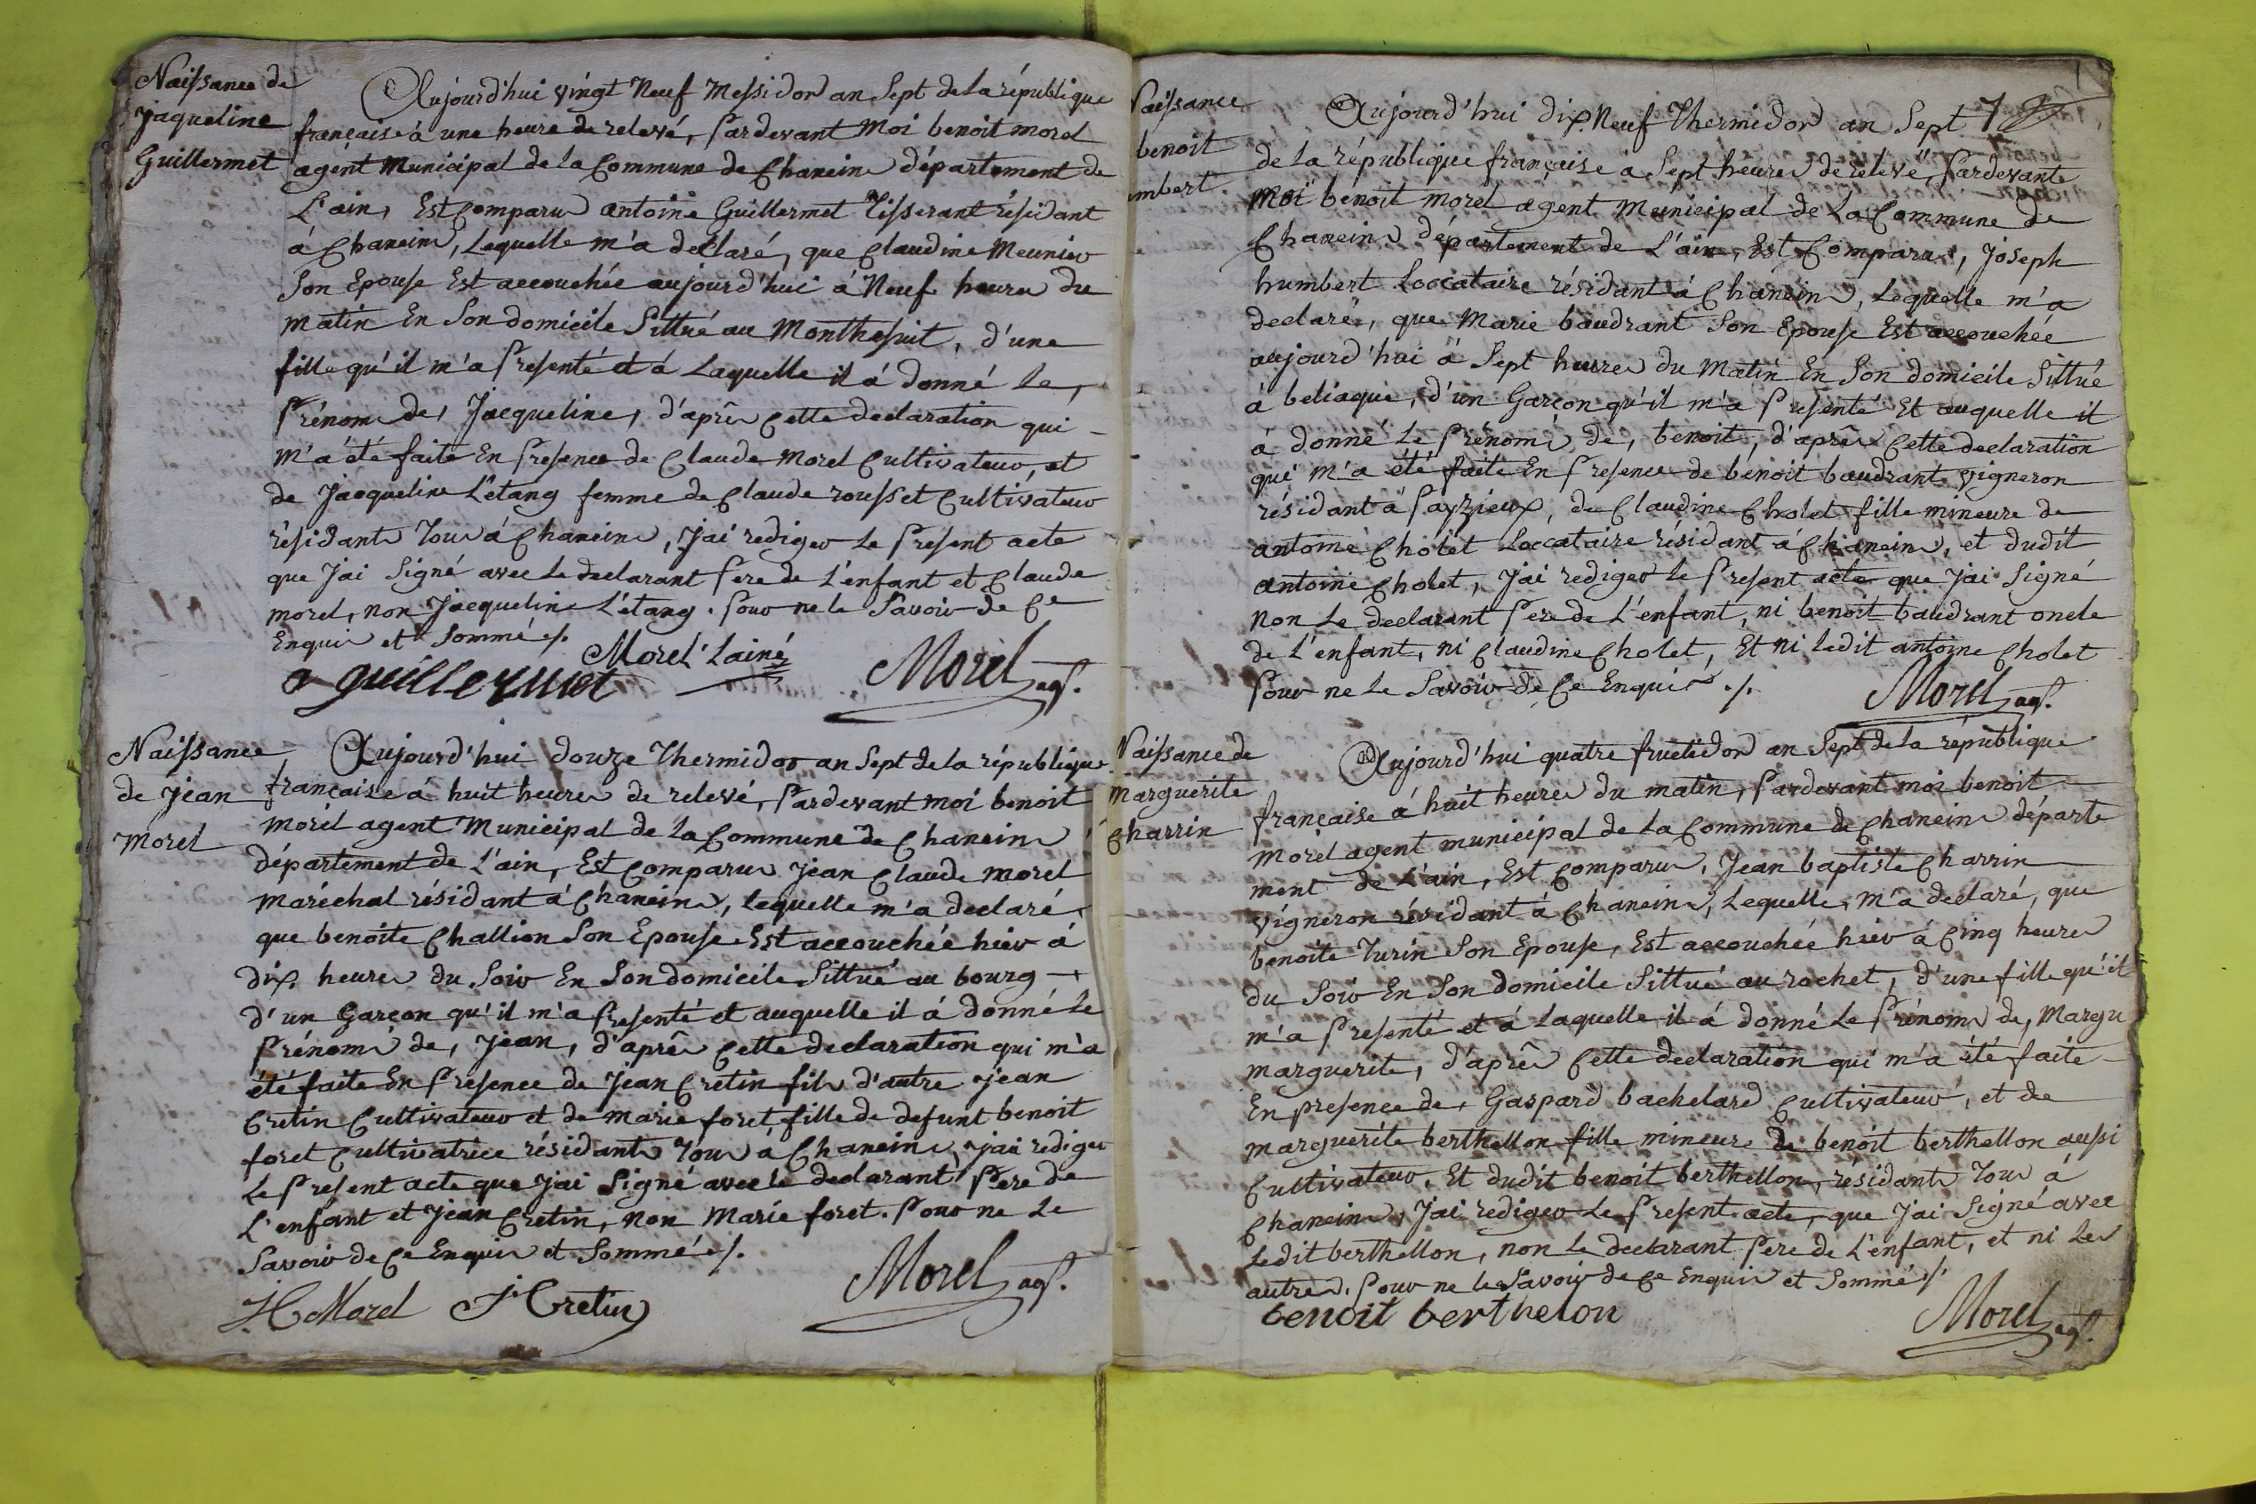 Naissance de
Jaqueline
Guillermet
Aujourd'hui vingt Neuf Messidor an Sept de la république
française à une heure de relevé, Pardevant Moi benoit morel
agent Municipal de la Commune de Chanein département de
L'ain, Est Comparu antoine Guillermet Tisserant résidant
à Chanein, Lequelle m'a declaré, que Claudine Meunier
Son Epouse Est accouchée aujourd'hui à Neuf heures du
matin En Son domicile Sittué au Monthesuit, d'une
fille qu'il m'a Presenté et à Laquelle il à donné Le,
Prénom de, Jacqueline, d'après Cette declaration qui -
m'a été faite En Presence de Claude Morel Cultivateur, et
de Jacqueline L'etang femme de Claude rousset Cultivateur
résidants Tous à Chanein, J'ai rediger Le Present acte
que J'ai Signé avec Le declarant Pere de L'enfant et Claude
morel, non Jacqueline L'etang. Pour ne le Savoir de Ce
Enquis et Sommé ./.
Morel Lainé
a guillermet
Morel agt.
Naissance
de Jean
Morel
Aujourd'hui douze Thermidor an Sept de la république
française à huit heures de relevé, Pardevant moi benoit
morel agent Municipal de La Commune de Chanein
département de L'ain, Est Comparu Jean Claude morel
Maréchal résidant à Chanein, Lequelle m'a declaré,
que benoite Challion Son Epouse Est accouchée hier à
dix heures du Soir En Son domicile Sittué au bourg
d'un Garçon qu'il m'a Presenté et auquelle il à donné Le
Prénom de, Jean, d'après Cette declaration qui m'a
été faite En Presence de Jean Cretin fils d'autre Jean
Cretin Cultivateur et de Marie foret fille de defunt benoit
foret Cultivatrice résidants Tous à Chanein, J'ai rediger
Le Present acte que J'ai Signé avec le declarant Pere de
L'enfant et Jean Cretin, Non Marie foret. Pour ne Le
Savoir de Ce Enquis et Sommé ./.
JC Morel J. Cretin
Morel agt.
Naissance
benoit
umbert
Aujourd'hui dix Neuf Thermidor an Sept 7
de la république française à Sept heures de relevé, Pardevant
Moi benoit morel agent Municipal de La Commune de
Chanein département de L'ain, Est Comparu, Joseph
humbert Loccataire résidant à Chanein, Lequelle m'a
declaré, que Marie baudrant Son Epouse Est accouchée
aujourd'hui à Sept heures du Matin En Son domicile Sittué
à beliaque, d'un Garçon qu'il m'a Presenté Et auquelle il
à donné Le Prénom de, benoit, d'après Cette declaration
qui m'a été faite En Presence de benoit baudrant Vigneron
résidant à Payzieux, de Claudine Cholet fille mineure de
antoine Cholet Loccataire résidant à Chanein, et dudit
antoine Cholet, J'ai rediger Le Present acte que J'ai Signé
non Le declarant Pere de L'enfant, ni benoit baudrant oncle
de L'enfant, ni Claudine Cholet, Et ni Ledit antoine Cholet
Pour ne Le Savoir de Ce Enquis ./.
Morel agt.
Naissance de
marguerite
Charrin
Aujourd'hui quatre fructidor an Sept de la république
française à huit heures du matin, Pardevant moi benoit
morel agent municipal de La Commune de Chanein départe
ment de L'ain, Est Comparu, Jean baptiste Charrin
vigneron résidant à Chanein, Lequelle, m'a declaré, que
benoite Turin Son Epouse, Est accouchée hier à Cinq heures
du Soir En Son domicile Sittué au rochet, d'une fille qu'il
m'a Presenté et à Laquelle il à donné Le Prénom de, Margu
marguerite, d'après Cette declaration qui m'a été faite
En presence de, Gaspard bachelard Cultivateur, et de
marguerite berthellon fille mineure de benoit berthellon aussi
Cultivateur, Et dudit benoit berthellon, résidants Tous à
Chanein, J'ai rediger Le Present acte, que J'ai Signé avec
Ledit berthellon, non Le declarant Pere de L'enfant, et ni Les
autres, Pour ne Le Savoir de Ce Enquis et Sommé ./.
benoit berthelon
Morel agt.